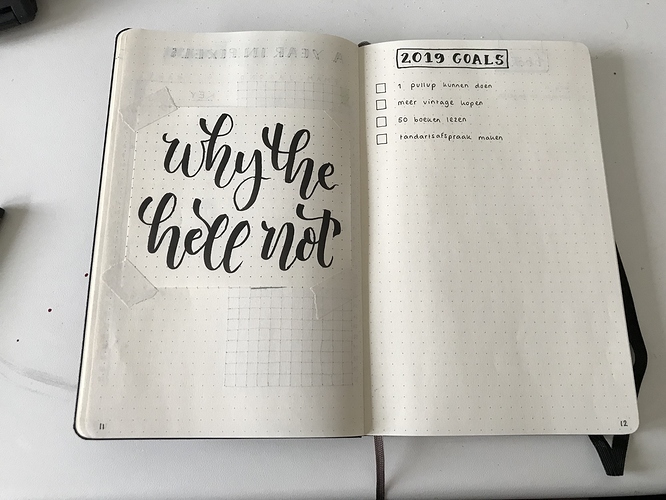 why the
hell not
11
2019 GOALS
1 pullup kunnen doen
meer vintage kopen
50 boeken lezen
tandartsafspraak maken
12